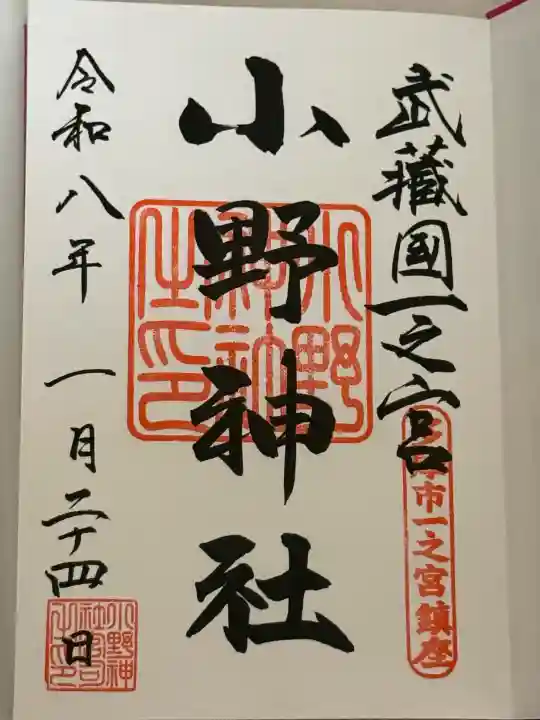 武蔵國一之宮
多摩市一之宮鎮座
小野神社
小野神社之印
令和八年 一月二十四日
小野神社宮司之印